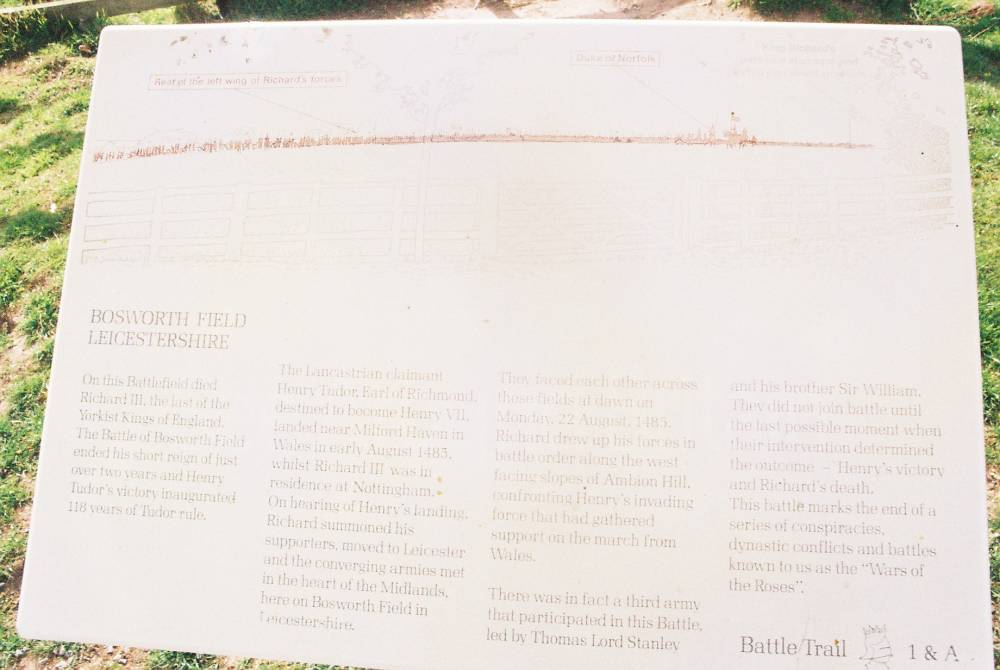 Rest of the left wing of Richard's forces
Duke of Norfolk
King Richard's
BOSWORTH FIELD
LEICESTERSHIRE
On this Battlefield died
Richard III, the last of the
Yorkist Kings of England.
The Battle of Bosworth Field
ended his short reign of just
over two years and Henry
Tudor's victory inaugurated
118 years of Tudor rule.
The Lancastrian claimant
Henry Tudor, Earl of Richmond,
destined to become Henry VII,
landed near Milford Haven in
Wales in early August 1485,
whilst Richard III was in
residence at Nottingham.
On hearing of Henry's landing,
Richard summoned his
supporters, moved to Leicester
and the converging armies met
in the heart of the Midlands,
here on Bosworth Field in
Leicestershire.
They faced each other across
these fields at dawn on
Monday, 22 August, 1485.
Richard drew up his forces in
battle order along the west
facing slopes of Ambion Hill,
confronting Henry's invading
force that had gathered
support on the march from
Wales.
There was in fact a third army
that participated in this Battle,
led by Thomas Lord Stanley
and his brother Sir William.
They did not join battle until
the last possible moment when
their intervention determined
the outcome – Henry's victory
and Richard's death.
This battle marks the end of a
series of conspiracies,
dynastic conflicts and battles
known to us as the "Wars of
the Roses".
Battle Trail 1 & A